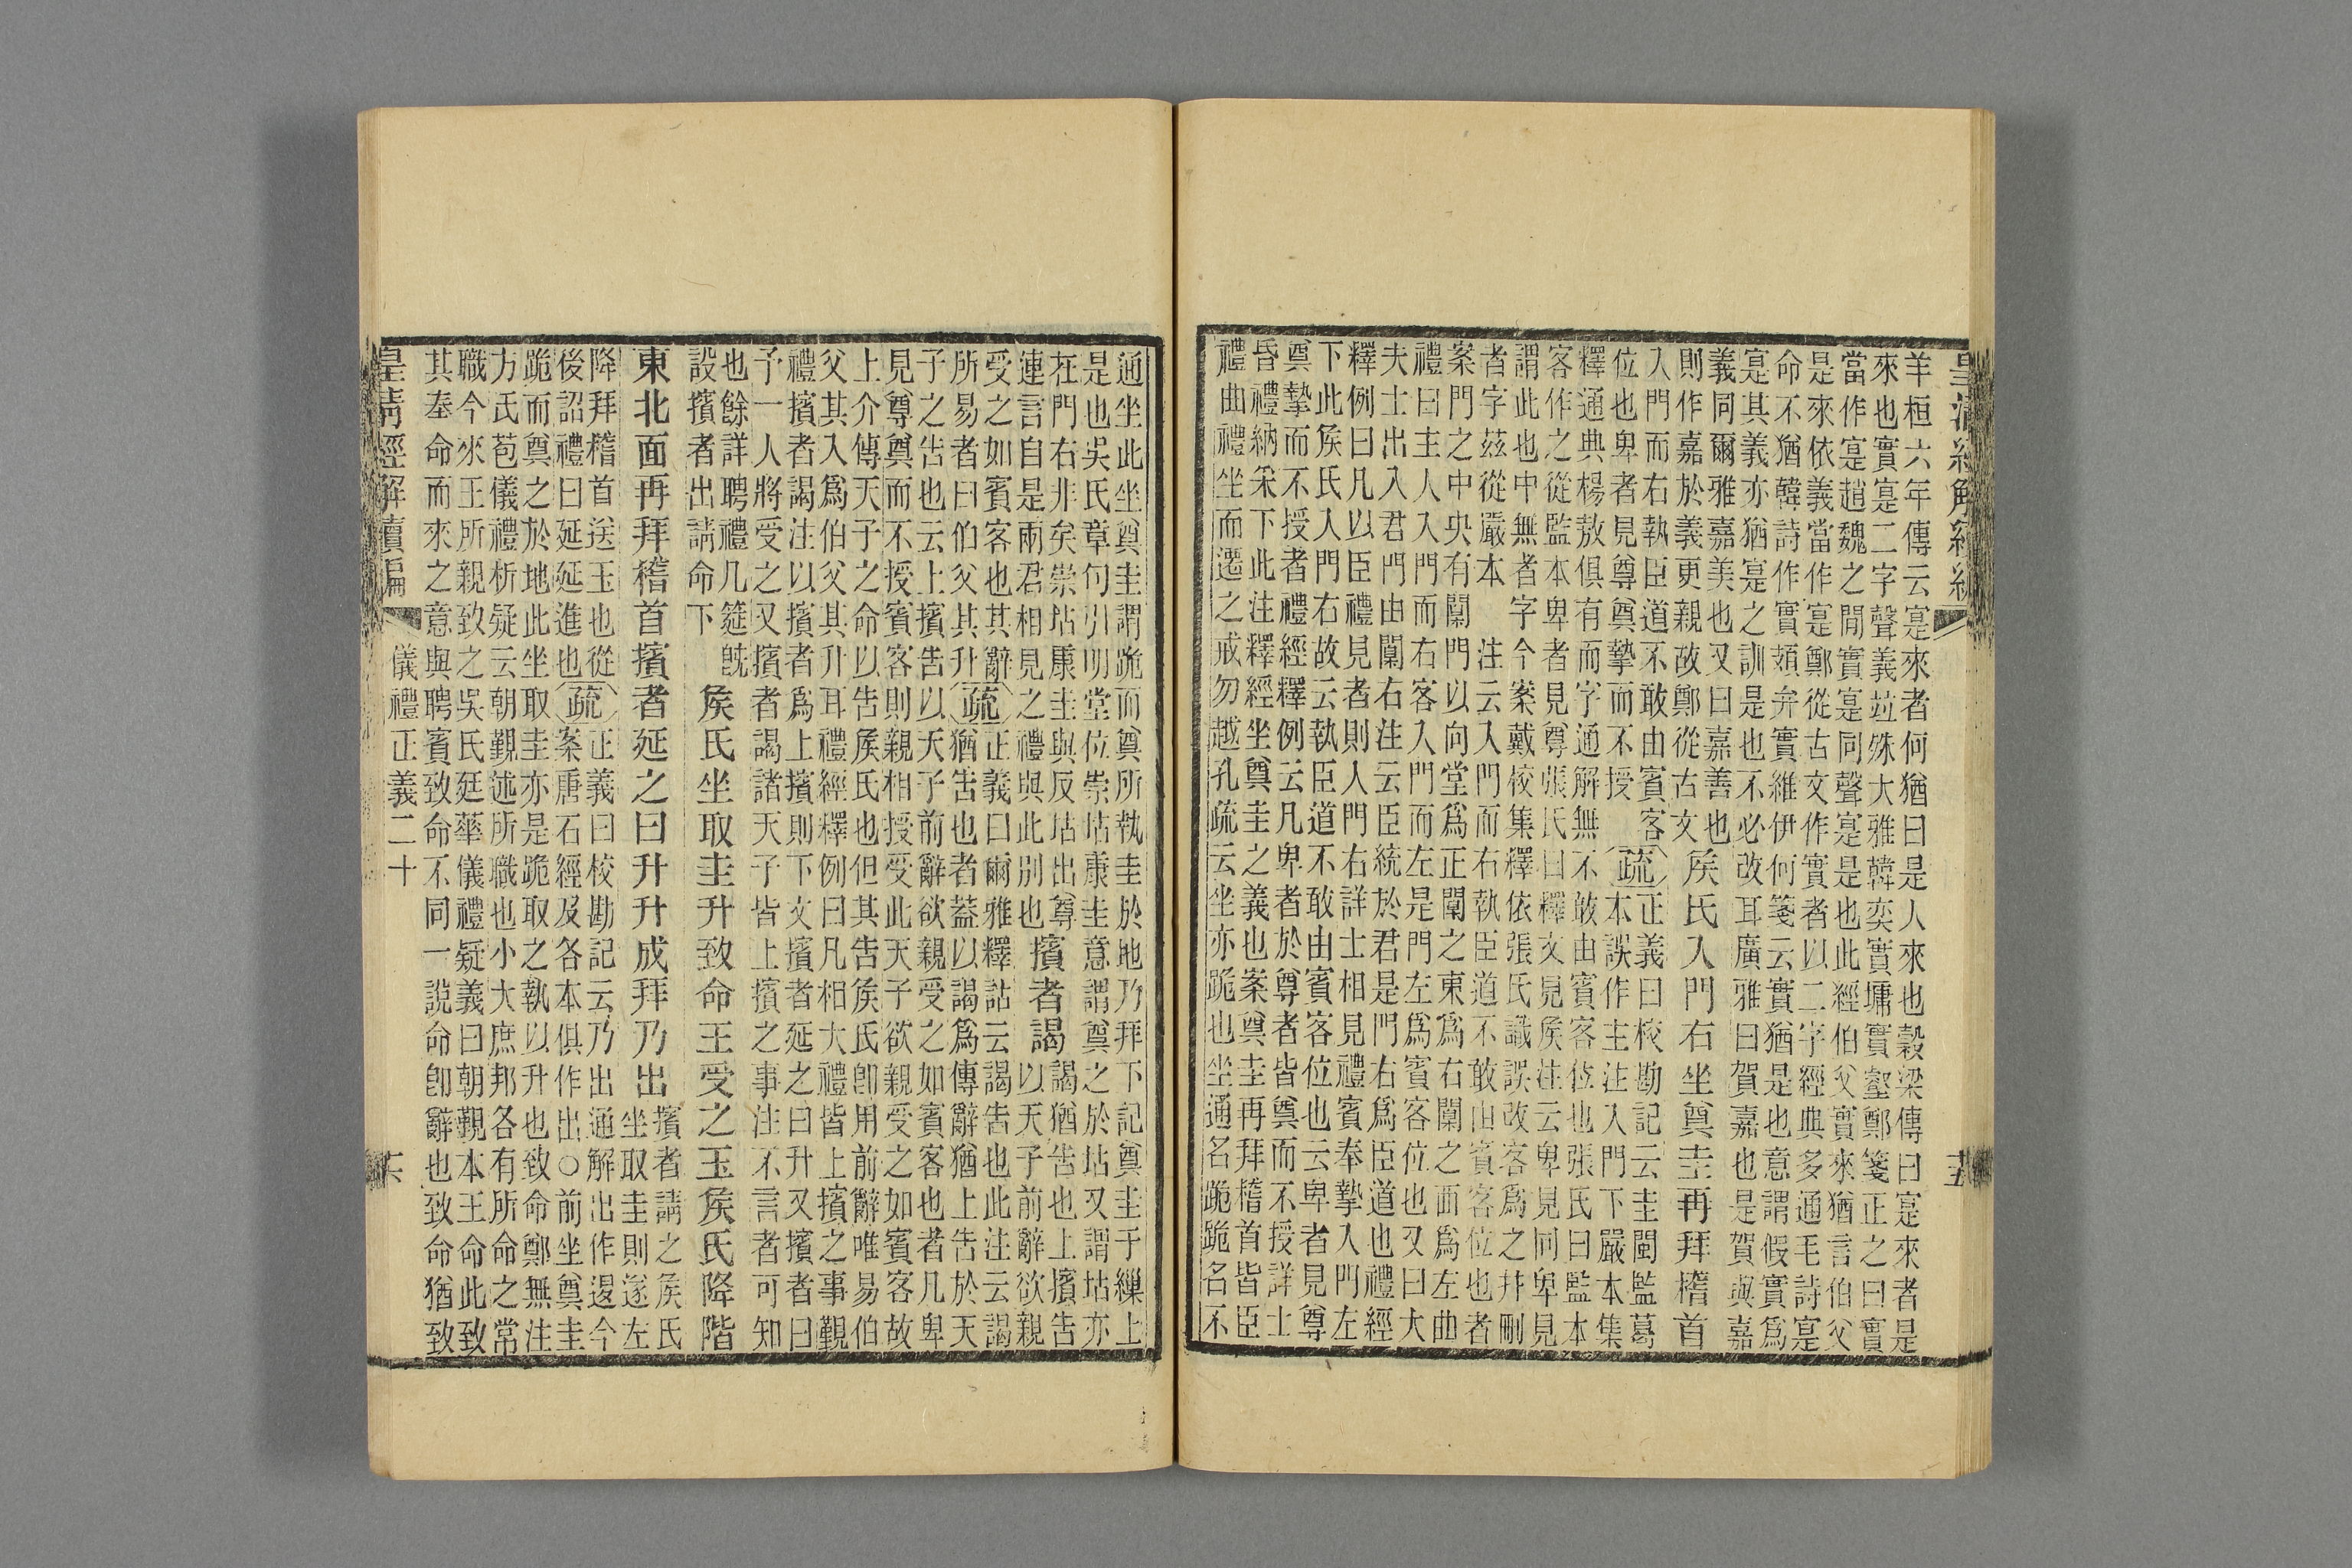 皇清經解續編 十五
羊桓六年傳云寔來者何猶曰是人來也穀梁傳曰寔來者是
來也實寔二字聲義竝殊大雅韓奕實墉實壑鄭箋正之曰實
當作寔趙魏之閒實寔同聲寔是也此經伯父實來猶言伯父
是來依義當作寔鄭從古文作實者以二字經典多通毛詩寔
命不猶韓詩作實頍弁實維伊何箋云實猶是也意謂假實爲
寔其義亦猶寔之訓是也不必改耳廣雅曰賀嘉也是賀與嘉
義同爾雅嘉美也又曰嘉善也
則作嘉於義更親故鄭從古文
侯氏入門右坐奠圭再拜稽首
入門而右執臣道不敢由賓客
位也卑者見尊奠摯而不授
疏
正義曰校勘記云圭閩監葛
本誤作主注入門下嚴本集
釋通典楊敖俱有而字通解無不敢由賓客位也張氏曰監本
客作之從監本卑者見尊張氏曰釋文見侯注云卑見同卑見
謂此也中無者字今案戴校集釋依張氏識誤改客爲之幷刪
者字茲從嚴本 注云入門而右執臣道不敢由賓客位也者
案門之中央有闑門以向堂爲正闑之東爲右闑之西爲左曲
禮曰主人入門而右客入門而左是門左爲賓客位也又曰大
夫士出入君門由闑右注云臣統於君是門右爲臣道也禮經
釋例曰凡以臣禮見者則入門右詳士相見禮賓奉摯入門左
下此侯氏入門右故云執臣道不敢由賓客位也云卑者見尊
奠摯而不授者禮經釋例云凡卑者於尊者皆奠而不授詳士
昏禮納采下此注釋經坐奠圭之義也案奠圭再拜稽首皆臣
禮曲禮坐而遷之戒勿越孔疏云坐亦跪也坐通名跪跪名不
通坐此坐奠圭謂跪而奠所執圭於地乃拜下記奠圭于繅上
是也吳氏章句引明堂位崇坫康圭意謂奠之於坫又謂坫亦
在門右非矣崇坫康圭與反坫出尊
連言自是兩君相見之禮與此別也
擯者謁
謁猶告也上擯告
以天子前辭欲親
受之如賓客也其辭
所易者曰伯父其升
疏
正義曰爾雅釋詁云謁告也此注云謁
猶告也者蓋以謁爲傳辭猶上告於天
子之告也云上擯告以天子前辭欲親受之如賓客也者凡卑
見尊奠而不授賓客則親相授受此天子欲親受之如賓客故
上介傳天子之命以告侯氏也但其告侯氏卽用前辭唯易伯
父其入爲伯父其升耳禮經釋例曰凡相大禮皆上擯之事覲
禮擯者謁注以擯者爲上擯則下文擯者延之曰升又擯者曰
予一人將受之又擯者謁諸天子皆上擯之事注不言者可知
也餘詳聘禮几筵旣
設擯者出請命下
侯氏坐取圭升致命王受之玉侯氏降階
東北面再拜稽首擯者延之曰升升成拜乃出
擯者請之侯氏
坐取圭則遂左
降拜稽首送玉也從
後詔禮曰延延進也
疏
正義曰校勘記云乃出通解出作遝今
案唐石經及各本俱作出○前坐奠圭
跪而奠之於地此坐取圭亦是跪取之執以升也致命鄭無注
方氏苞儀禮析疑云朝覲述所職也小大庶邦各有所命之常
職今來王所親致之吳氏廷華儀禮疑義曰朝覲本王命此致
其奉命而來之意與聘賓致命不同一說命卽辭也致命猶致
皇清經解續編 儀禮正義二十 十六